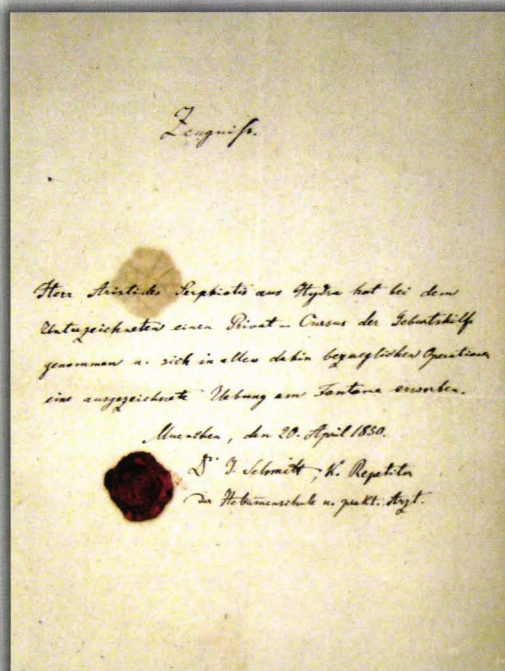 Zeugniß.
Herr Aristides Serphiotis aus Hydra hat bei dem
Unterzeichneten einen Privat-Cursus der Geburtshilfe
genommen u. sich in allen dahin bezueglichen Operationen
eine ausgezeichnete Uebung am Fantome erworben.
Muenchen, den 20. April 1850.
Dr J. Schmitt, K. Repetitor
der Hebammenschule u. prakt. Arzt.